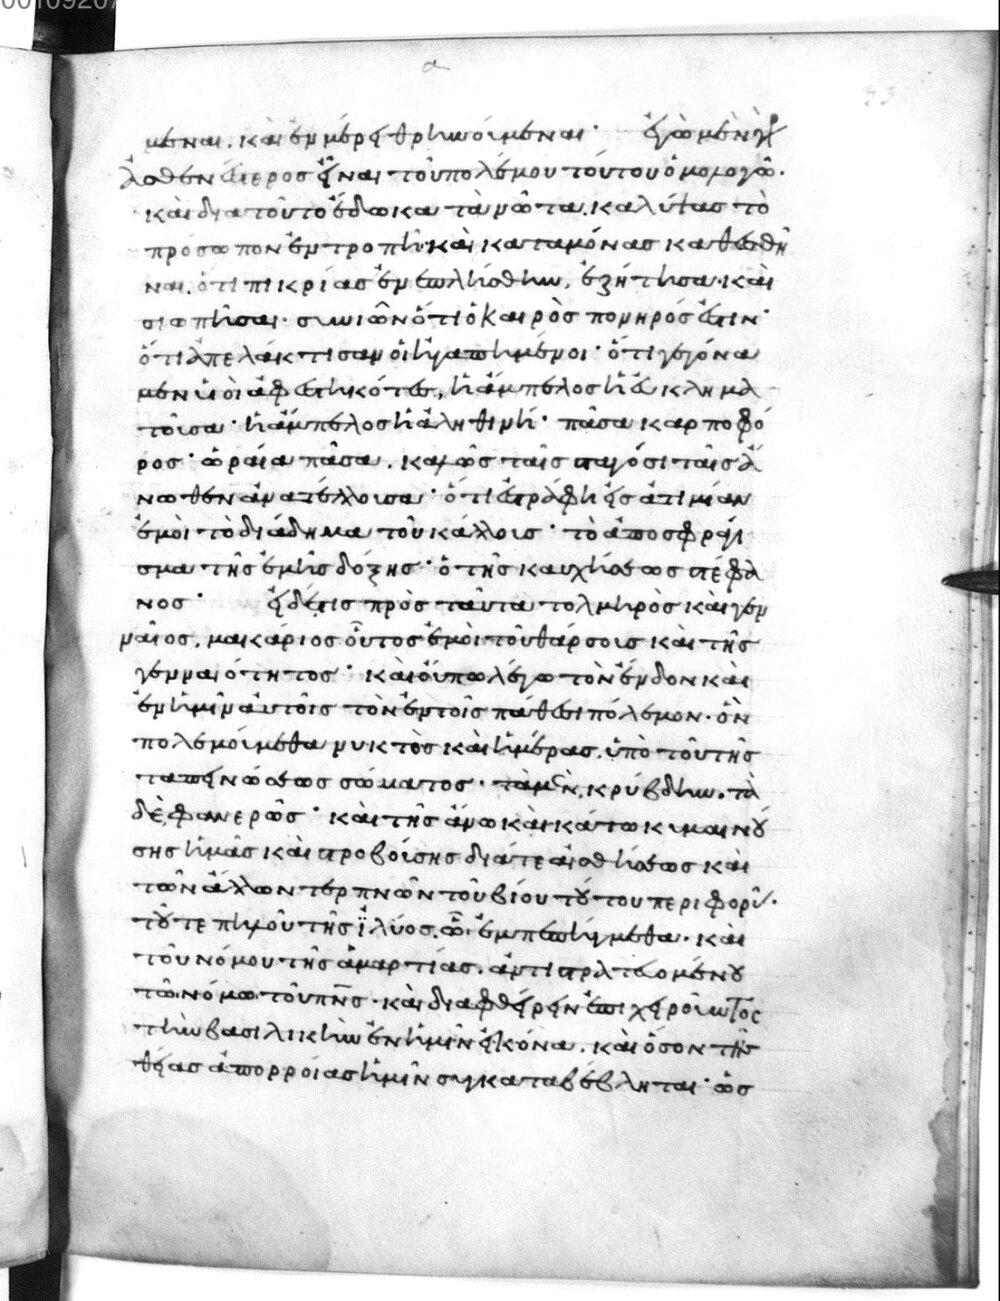 μεναι. καὶ ἐν μέρει θρηνούμεναι· ἐγὼ μὲν
λαθεῖν ἀνίερος εἶναι τοῦ πολέμου τούτου ὁμολογῶ.
καὶ διατοῦτο ἔδωκα τὰ νῶτα. καλύψας τὸ
πρόσωπον ἐντροπῆ· καὶ καταμόνας καθεσθῆ
ναι. ὅτι πικρίας ἐνεπλήσθην, ἐζήτησα· καὶ
σιωπῆσαι· συνιῶν ὅτι ὁ καιρὸς πονηρός ἐστιν·
ὅτι ἀπελάκτισαν οἱ ἠγαπημένοι· ὅτι γεγόνα
μεν υἱοὶ ἀφεστηκότες, ἡ ἄμπελος ἡ εὐκλημα
τοῦσα· ἡ ἄμπελος ἡ ἀληθινή· πᾶσα καρποφό
ρος· ὡραία πᾶσα. καλῶς ταῖς σταγόσι ταῖς ἄ
νωθεν ἀνατέλλουσα· ὅτι ἐστράφη εἰς ἀτιμίαν
ἐμοὶ τὸ διάδημα τοῦ κάλλους· τὸ ἀποσφράγι
σμα τῆς ἐμῆς δόξης· ὁ τῆς καυχήσεως στέφα
νος· εἰ δέ τις πρὸς ταῦτα τολμηρὸς καὶ γεν
ναῖος, μακάριος οὗτος ἐμοὶ τοῦ θάρσους καὶ τῆς
γενναιότητος· καὶ οὔπω λέγω τὸν ἔνδον καὶ
ἐν ἡμῖν αὐτοῖς τὸν ἐν τοῖς πάθεσι πόλεμον. ὃν
πολεμούμεθα νυκτὸς καὶ ἡμέρας. ὑπὸ τοῦ τῆς
ταπεινώσεως σώματος. τὰ μὲν κρύβδην. τὰ
δὲ φανερῶς· καὶ τῆς ἄνω καὶ κάτω κυμαινού
σης ἡμᾶς καὶ στροβούσης διά τε αἰσθήσεως καὶ
τῶν ἄλλων τερπνῶν τοῦ βίου τούτου περιφορᾶς.
τοῦ τε πηλοῦ τῆς ἰλύος. ᾧ ἐμπεπήγμεθα. καὶ
τοῦ νόμου τῆς ἁμαρτίας. ἀντιστρατευομένου
τῶ νόμω τοῦ πνς. καὶ διαφθείρειν ἐπιχειροῦντος
τὴν βασιλικὴν ἐν ἡμῖν εἰκόνα. καὶ ὅσον τῆς
θείας ἀπορροίας ἡμῖν συγκαταβέβληται· ὡς